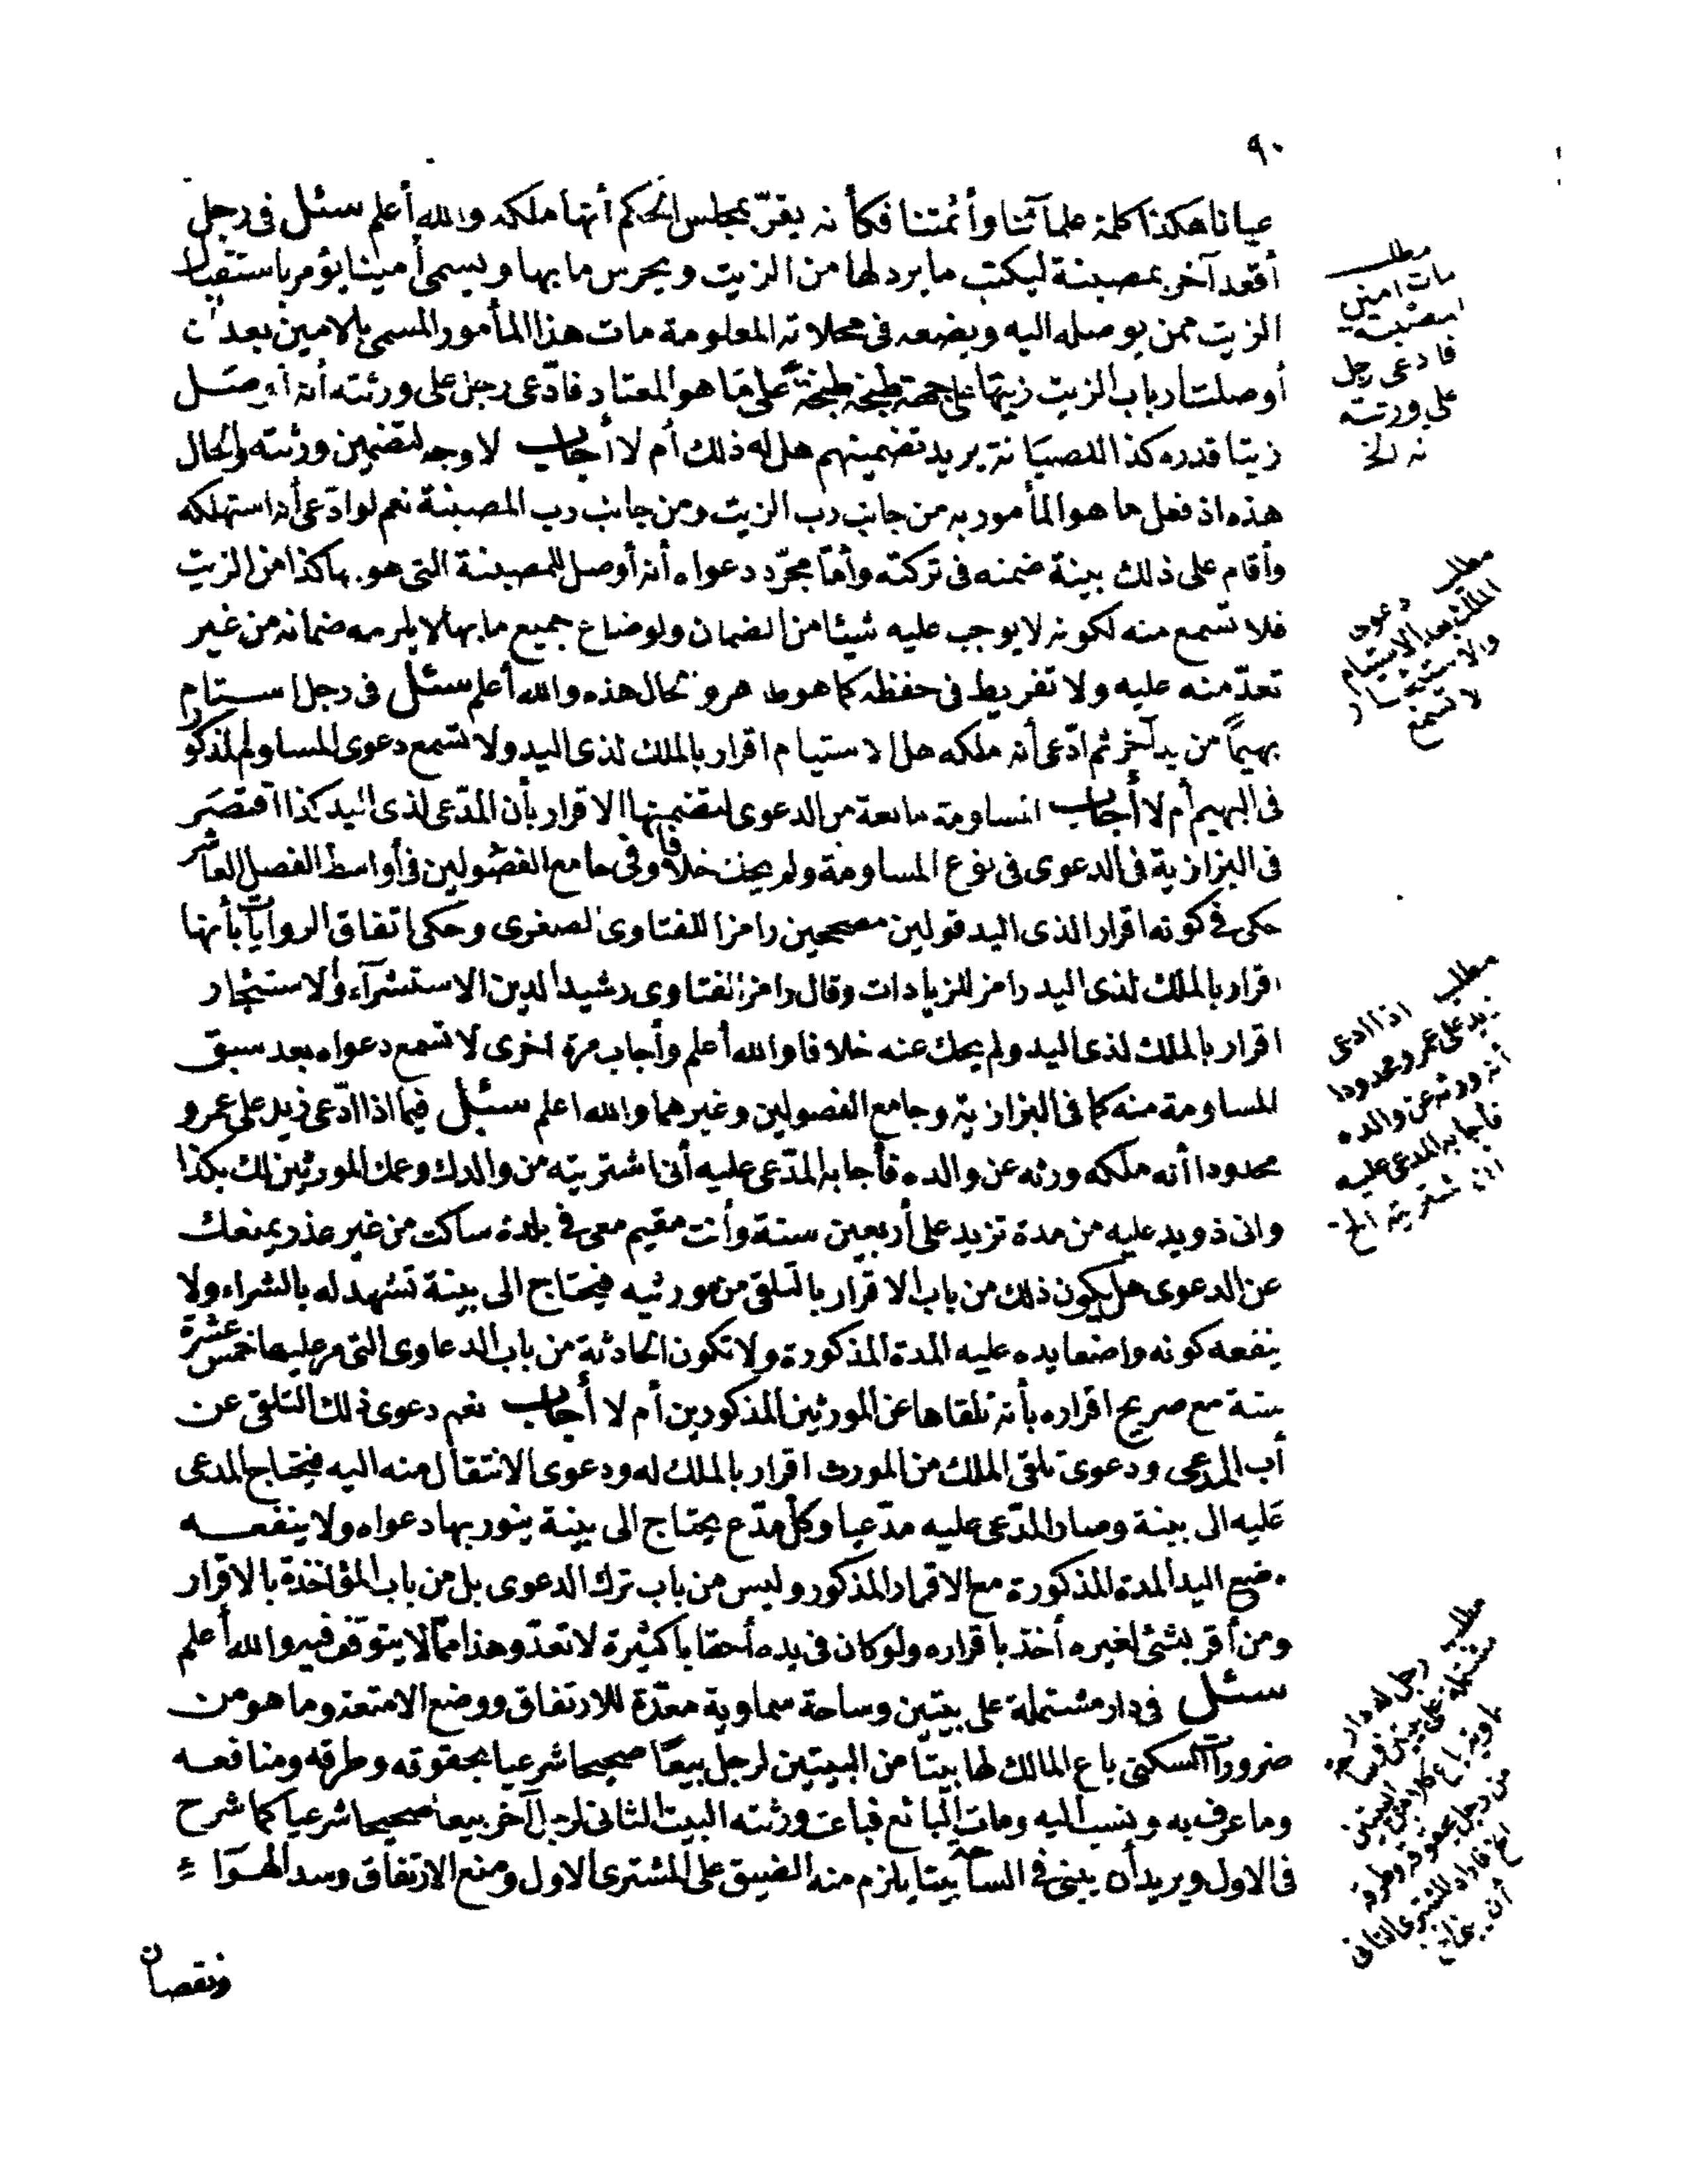 ٩٠
عيانا هكذا كلمة علمآئنا وأئمتنا فكأنه يقرّ بمجلس الحكم أنها ملكه والله أعلم سئل فى رجل
أقعد آخر بمصبنة ليكتب ما يرد لها من الزيت ويحرس ما بها ويسمى أمينا يؤمر باستقبال
الزيت ممن يوصله اليه ويضعه فى محلاته المعلومة مات هذا المأمور المسمى بالامين بعد أن
أوصلت أرباب الزيت زيتها على جهة طبخة طبخة على ما هو المعتاد فادّعى رجل على ورثته أنه أوصل
زيتا قدره كذا للصبانة يريد تضمينهم هل له ذلك أم لا أجاب لا وجه لتضمين ورثته والحال
هذه اذ فعل ما هو المأمور به من جانب رب الزيت ومن جانب رب المصبنة نعم لو ادّعى أنه استهلكه
وأقام على ذلك بينة ضمنه فى تركته وأمّا مجرّد دعواه أنه أوصل للمصبنة التى هو بها كذا من الزيت
فلا تسمع منه لكونه لا يوجب عليه شيئا من الضمان ولو ضاع جميع ما بها لا يلزمه ضمانه من غير
تعدّ منه عليه ولا تفريط فى حفظه كما هو ظاهر والحال هذه والله أعلم سئل فى رجل استام
بهيمًا من يد آخر ثم ادّعى أنه ملكه هل الاستيام اقرار بالملك لذى اليد ولا تسمع دعوى المساوم المذكور
فى البهيم أم لا أجاب المساومة مانعة من الدعوى لتضمنها الاقرار بأن المدّعى لذى اليد كذا اقتصر
فى البزازية فى الدعوى فى نوع المساومة ولم يحك خلافا وفى جامع الفصولين فى أواسط الفصل العاشر
حكى فى كونه اقرارا لذى اليد قولين مصححين رامزا للفتاوى الصغرى وحكى اتفاق الروايات بأنها
اقرار بالملك لذى اليد رامز للزيادات وقال رامز الفتاوى رشيد الدين الاستشرآء والاستئجار
اقرار بالملك لذى اليد ولم يحك عنه خلافا والله أعلم وأجاب مرة اخرى لا تسمع دعواه بعد سبق
المساومة منه كما فى البزازية وجامع الفصولين وغيرهما والله اعلم سئل فيما اذا ادّعى زيد على عمرو
محدودا أنه ملكه ورثه عن والده فأجابه المدّعى عليه أنى اشتريته من والدك وعمك المورثين لك بكذا
وانى ذو يد عليه من مدة تزيد على أربعين سنة وأنت مقيم معى فى بلدة ساكت من غير عذر يمنعك
عن الدعوى هل يكون ذلك من باب الاقرار بالتلقى من مورثيه فيحتاج الى بينة تشهد له بالشراء ولا
ينفعه كونه واضعا يده عليه المدة المذكورة ولا تكون الحادثة من باب الدعاوى التى مر عليها خمس عشرة
سنة مع صريح اقراره بأنه تلقاها عن المورثين المذكورين أم لا أجاب نعم دعوى ذلك التلقى عن
أب المدعى ودعوى تلقى الملك من المورث اقرار بالملك له ودعوى الانتقال منه اليه فيحتاج المدعى
عليه الى بينة وصار المدّعى عليه مدّعيا وكل مدّع يحتاج الى بينة ينور بها دعواه ولا ينفعه
وضع اليد المدة المذكورة مع الاقرار المذكور وليس من باب ترك الدعوى بل من باب المؤاخذة بالاقرار
ومن أقر بشئ لغيره أخذ باقراره ولو كان فى يده أحقابا كثيرة لا تعدّ وهذا ممّا لا يتوقف فيه والله أعلم
سئل فى دار مشتملة على بيتين وساحة سماوية معدّة للارتفاق ووضع الامتعة وما هو من
ضرورات السكنى باع المالك لها بيتا من البيتين لرجل بيعًا صحيحا شرعيا بحقوقه وطرقه ومنافعه
وما عرف به ونسب اليه ومات البائع فباعت ورثته البيت الثانى لرجل آخر بيعا صحيحا شرعيا كما شرح
فى الاول ويريد أن يبنى فى الساحة بيتا يلزم منه الضيق على المشترى الاول ومنع الارتفاق وسد الهوآء
ونقصان
مطلب
مات امين
المصبنة
فادعى رجل
على ورثته
نه الخ
مطلب دعوى
الملك بعد الاستيام
والاستئجار
لا تسمع
مطلب اذا ادعى
زيد على عمرو محدودا
أنه ورثه عن والده
فأجابه المدعى عليه
انى اشتريته الخ
مطلب رجل له دار
مشتملة على بيتين وساحة
من رجل بحقوقه وطرقه
الخ فأراد المشترى الثانى
أن يبنى الخ